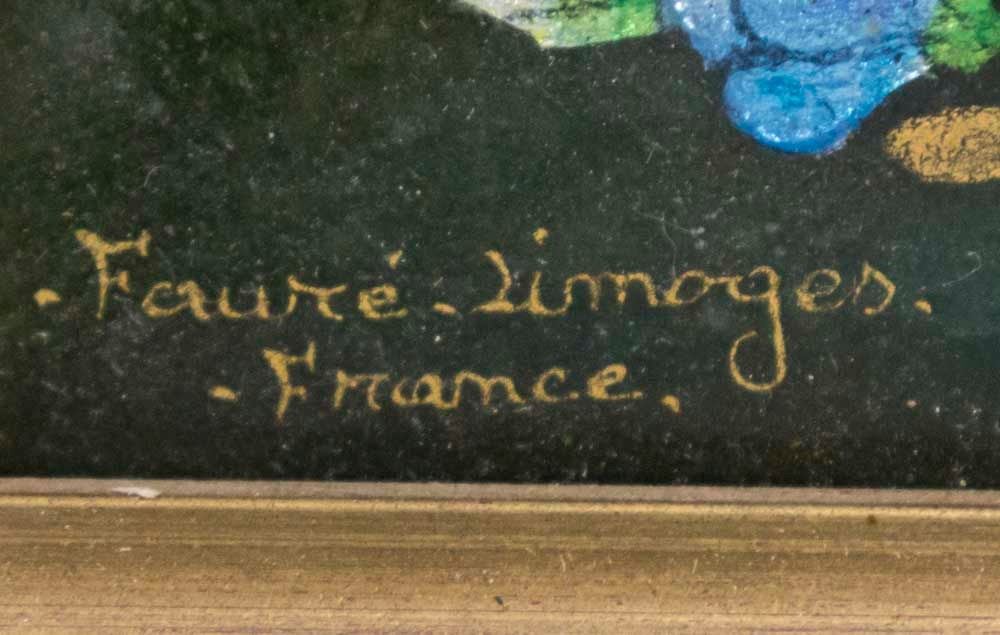 . Fauré . Limoges .
. France .